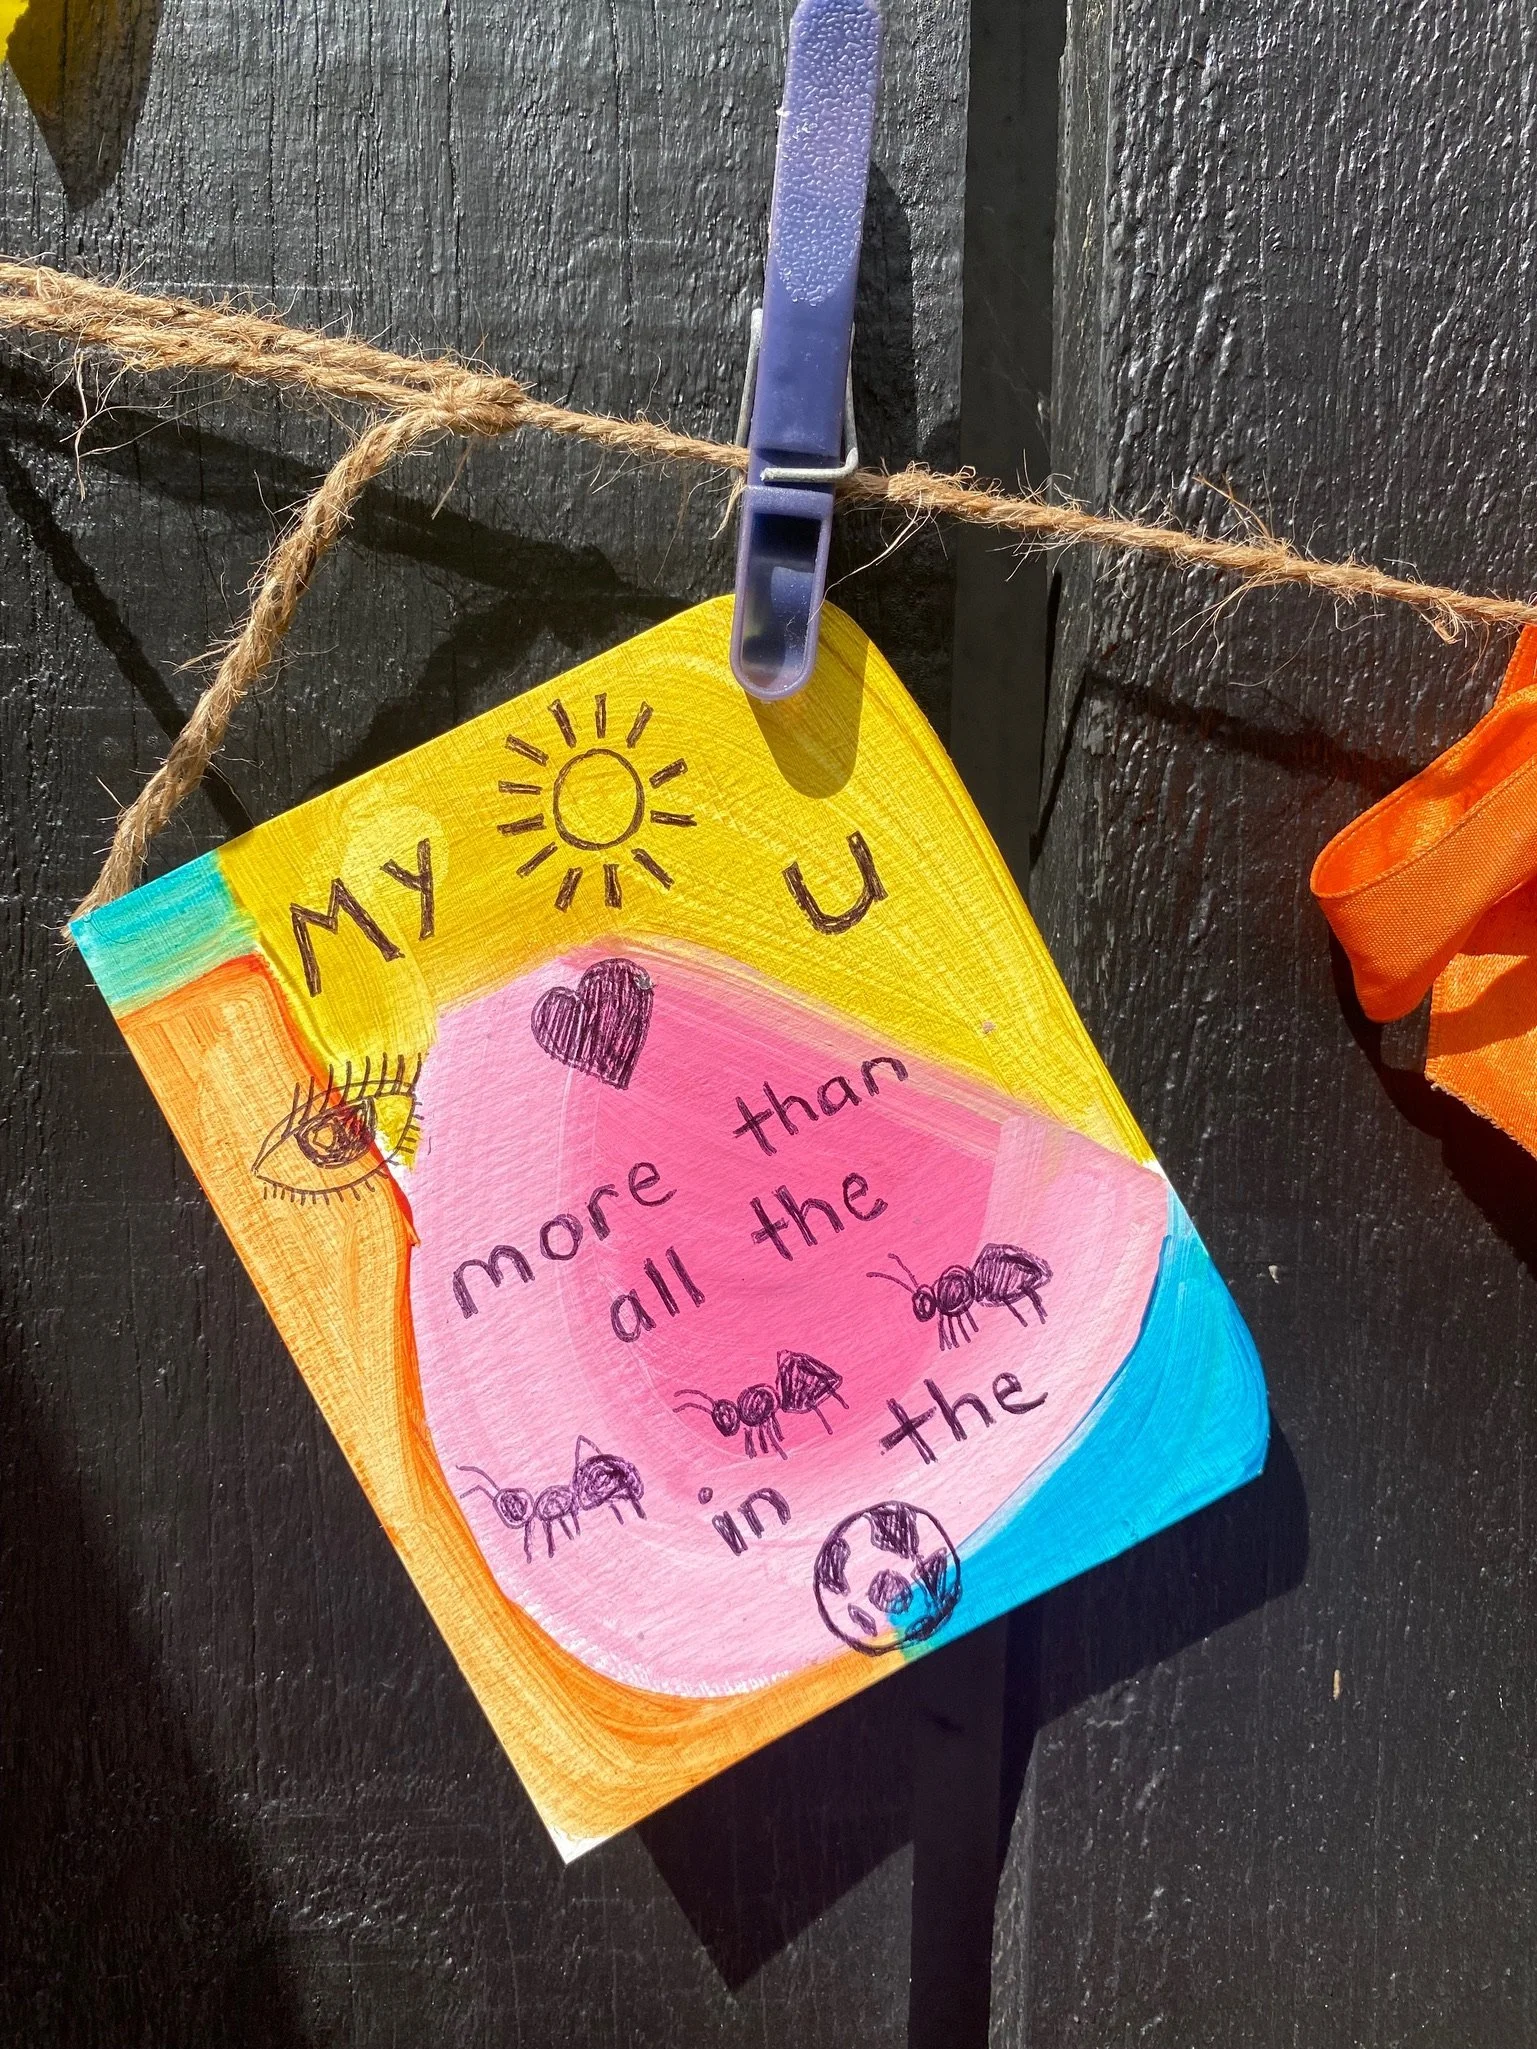 My
u
more than
all the
in the